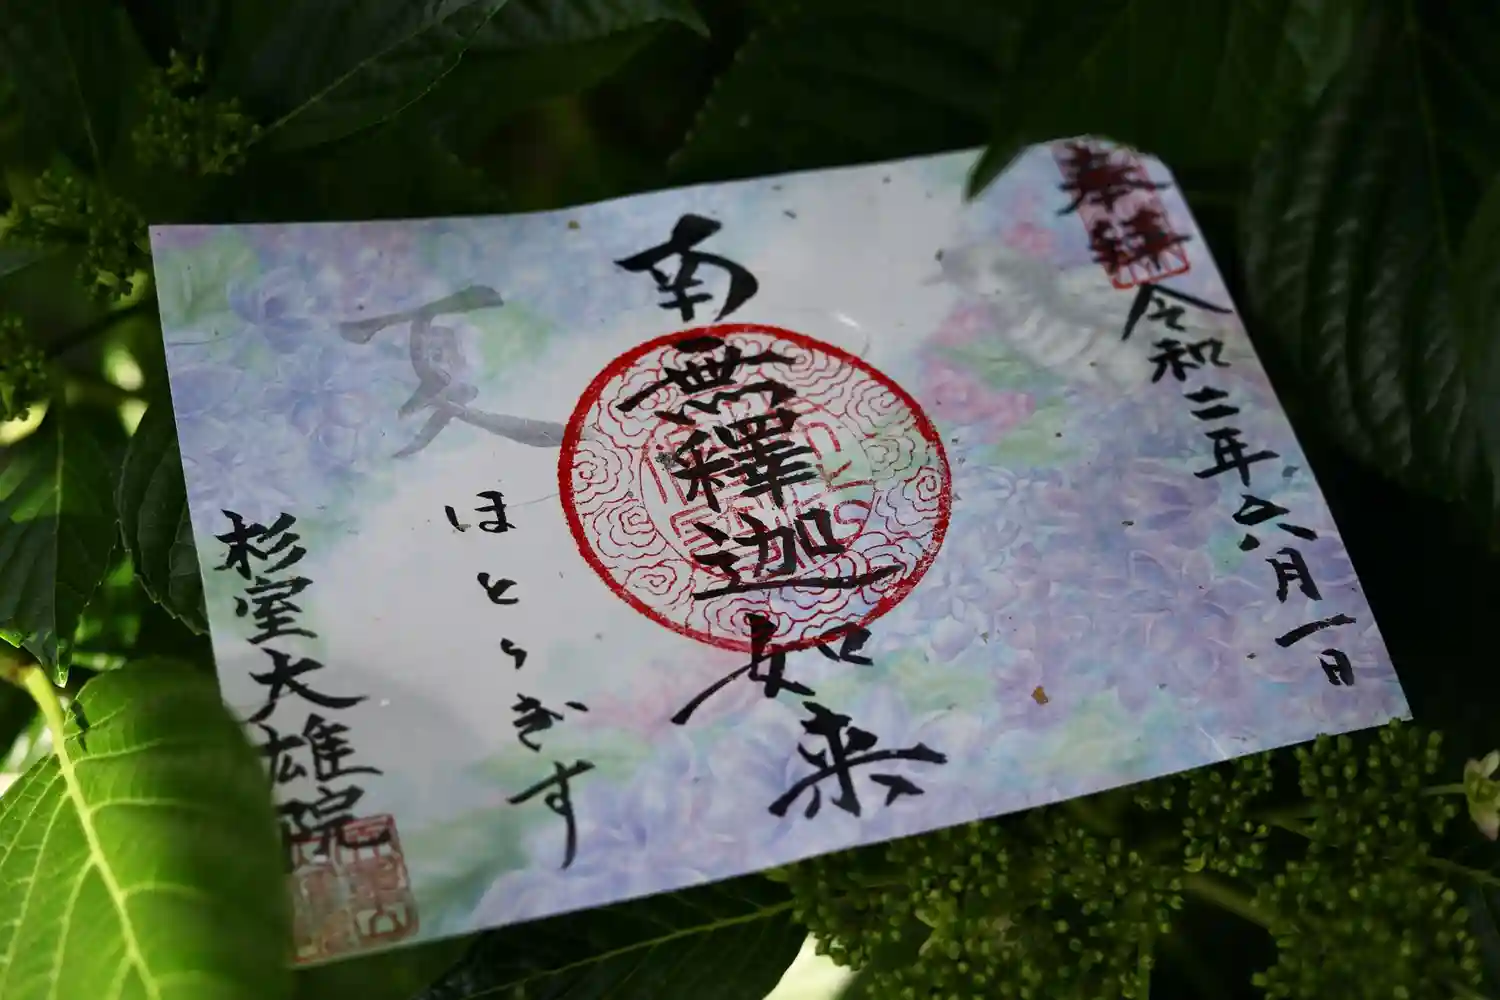 奉拝
令和二年六月一日
南無釋迦如来
夏
ほとゝぎす
杉室大雄院